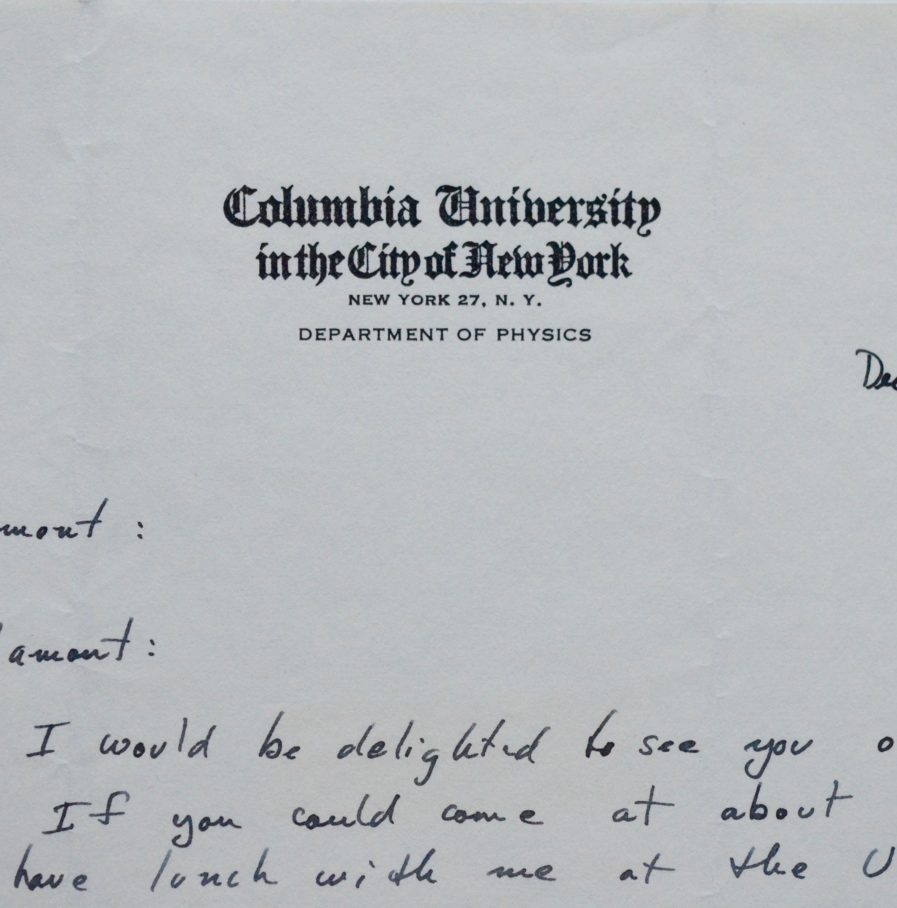 Columbia University
in the City of New York
NEW YORK 27, N. Y.
DEPARTMENT OF PHYSICS
amont :
I would be delighted to see you
If you could come at about
have lunch with me at the U